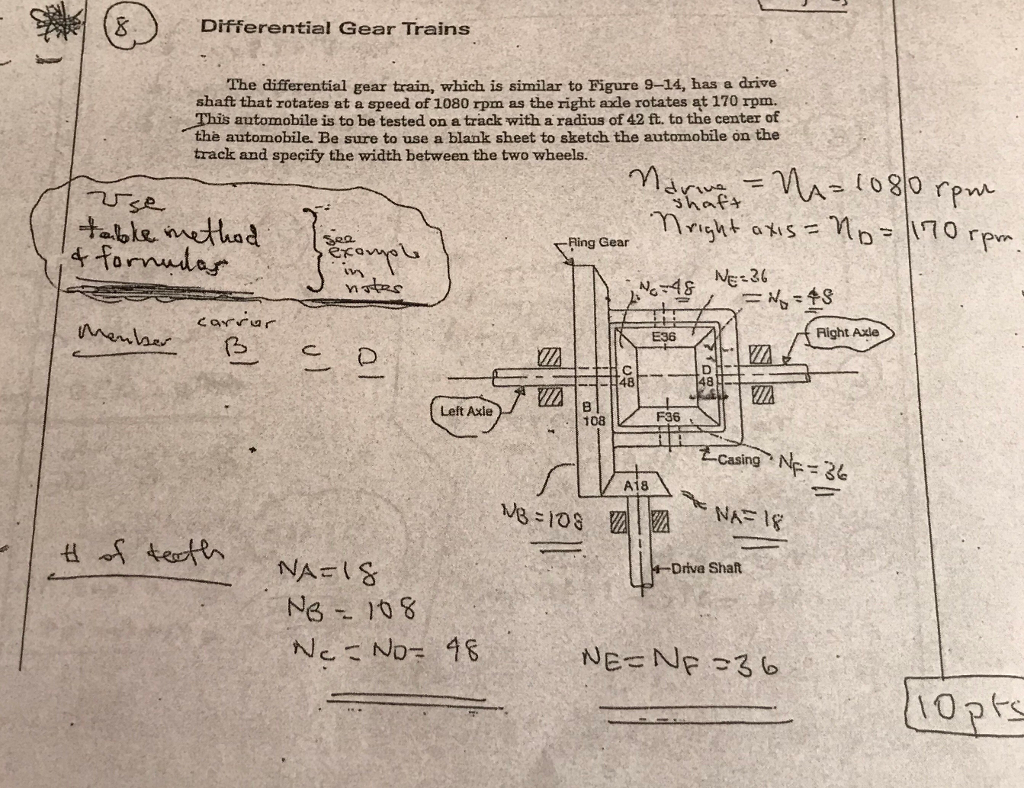 8.
Differential Gear Trains
The differential gear train, which is similar to Figure 9–14, has a drive
shaft that rotates at a speed of 1080 rpm as the right axle rotates at 170 rpm.
This automobile is to be tested on a track with a radius of 42 ft. to the center of
the automobile. Be sure to use a blank sheet to sketch the automobile on the
track and specify the width between the two wheels.
n drive shaft = nA = 1080 rpm
n right axis = nD = 170 rpm
Use
table method
& formulas
see
example
in
notes
Member
carrier
B C D
Ring Gear
NC=48
NE=36
= ND = 48
E36
Right Axle
C
48
D
48
Left Axle
B
108
F36
Casing
NF = 36
A18
NB = 108
NA = 18
Drive Shaft
# of teeth
NA = 18
NB = 108
NC = ND = 48
NE = NF = 36
10 pts